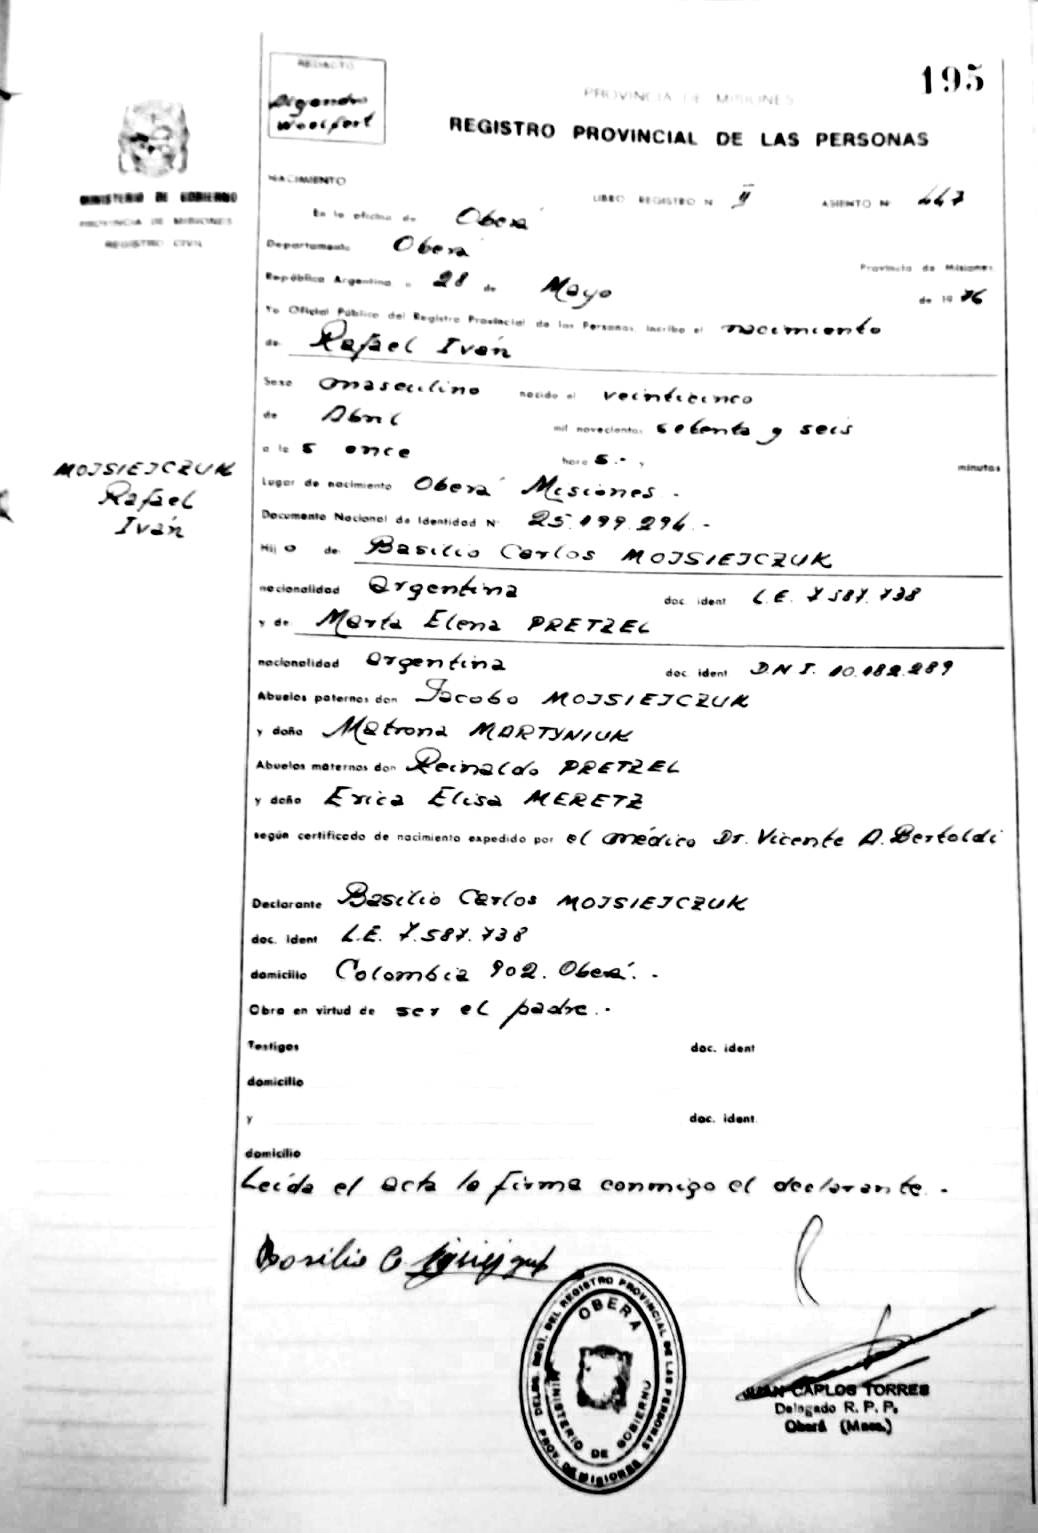 195
REDACTO
Alejandro
PROVINCIA DE MISIONES
REGISTRO PROVINCIAL DE LAS PERSONAS
MINISTERIO DE GOBIERNO
PROVINCIA DE MISIONES
REGISTRO CIVIL
NACIMIENTO
LIBRO REGISTRO N II ASIENTO Nº 447
En la oficina de Oberá
Departamento Oberá Provincia de Misiones
República Argentina a 28 de Mayo de 1976
Yo Oficial Público del Registro Provincial de las Personas inscribo el nacimiento
de Rafael Iván
Sexo masculino nacido el veinticinco
de Abril mil novecientos setenta y seis
a la s once hora s.- y minutos
MOJSIEJCZUK
Rafael
Iván
Lugar de nacimiento Oberá Misiones.-
Documento Nacional de Identidad Nº 25.199.294.-
Hijo de Basilio Carlos MOJSIEJCZUK
nacionalidad Argentina doc. ident L.E. 7.587.738
y de Marta Elena PRETZEL
nacionalidad argentina doc. ident D.N.I. 10.182.289
Abuelos paternos don Jacobo MOJSIEJCZUK
y doña Matrona MARTYNIUK
Abuelos maternos don Reinaldo PRETZEL
y doña Erica Elisa MERETZ
según certificado de nacimiento expedido por el médico Dr. Vicente A. Bertoldi
Declarante Basilio Carlos MOJSIEJCZUK
doc. ident L.E. 7.587.738
domicilio Colombia 902. Oberá.-
Obra en virtud de ser el padre.-
Testigos doc. ident
domicilio
y doc. ident.
domicilio
Leída el acta la firma conmigo el declarante.-
Basilio C.
DELEG. REGI. DEL REGISTRO PROVINCIAL DE LAS PERSONAS
OBERA
MINISTERIO DE GOBIERNO
PROV. DE MISIONES
JUAN CARLOS TORRES
Delegado R. P. P.
Oberá (Mnes.)